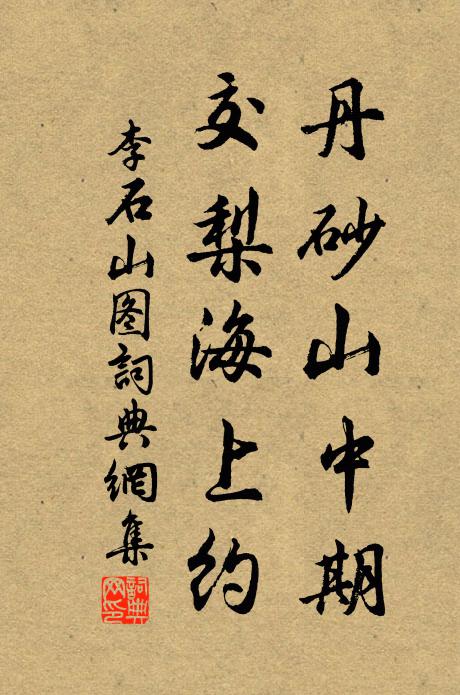 丹砂山中期
交梨海上约
李石山图詞典網集
詞典
网印